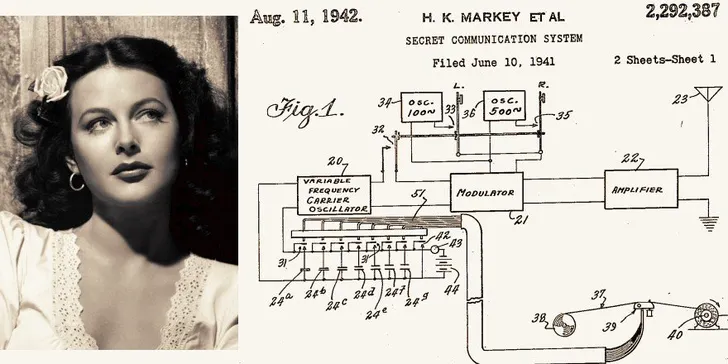 Aug. 11, 1942.
H. K. MARKEY ET AL
2,292,387
SECRET COMMUNICATION SYSTEM
Filed June 10, 1941
2 Sheets-Sheet 1
Fig. 1.
L.
R.
34
OSC.
100~
33
36
OSC.
500~
35
23
32
20
22
VARIABLE
FREQUENCY
CARRIER
OSCILLATOR
51
MODULATOR
AMPLIFIER
21
42
43
31
31
44
24a
24b
24c
24d
24e
24f
24g
37
38
39
40